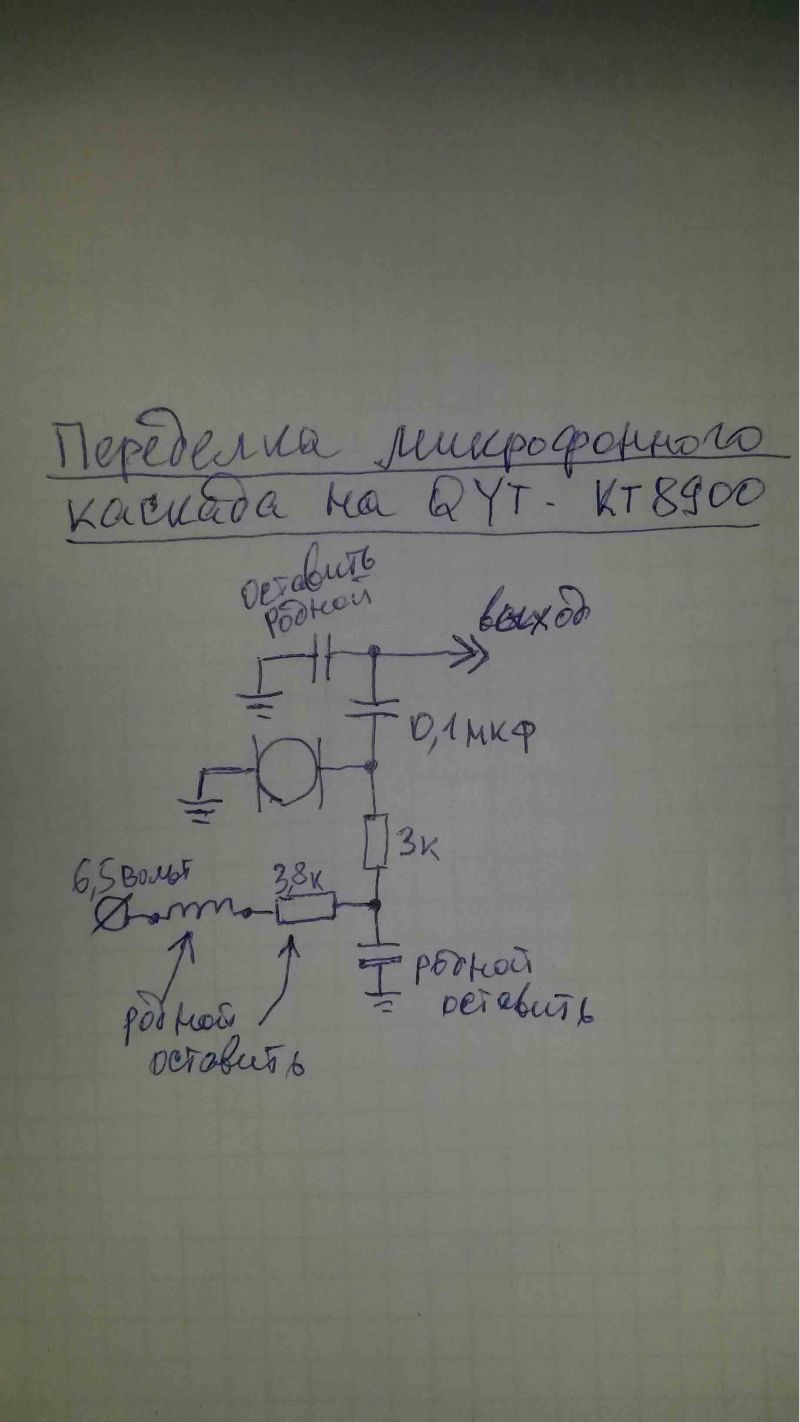 Переделка микрофонного
каскада на QYT- KT8900
оставить
родной
выход
0,1мкф
3к
6,5вольт
3,8к
родной
оставить
родной
оставить